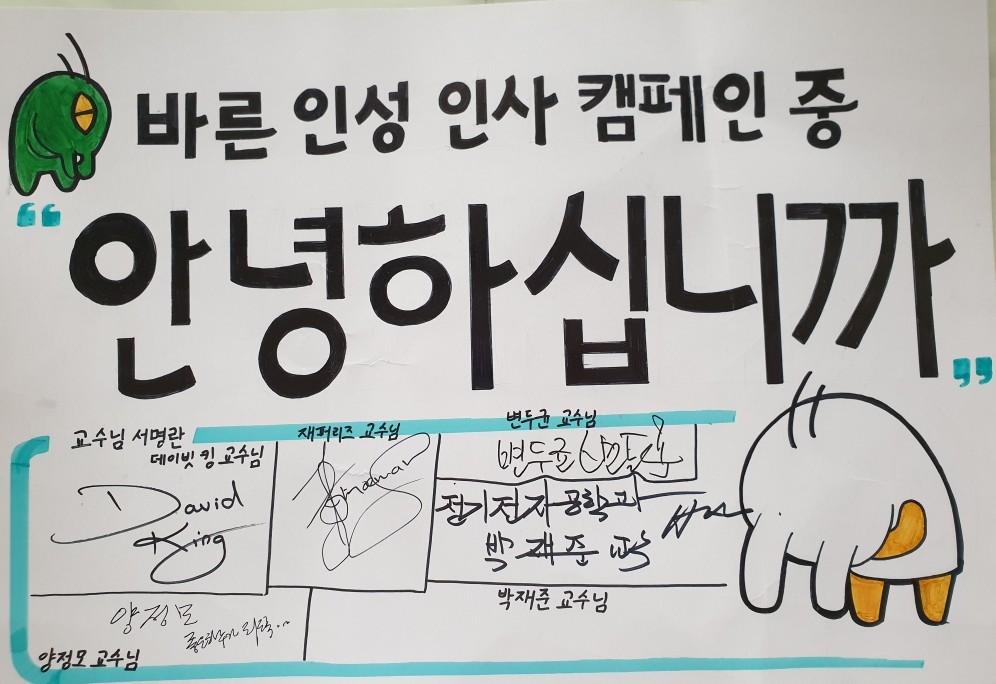 바른 인성 인사 캠페인 중
“안녕하십니까”
교수님 서명란
데이빗 킹 교수님
David
King
재퍼리즈 교수님
변두균 교수님
변두균
전기전자공학과
박재준
박재준 교수님
양정모
양정모 교수님